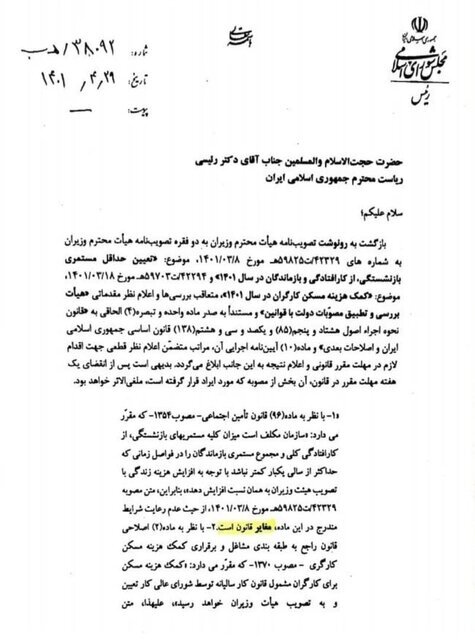 جمهوری اسلامی ایران
مجلس شورای اسلامی
رئیس
شماره: ۳۸۰۹۲/هـ ب
تاریخ: ۱۴۰۱/۴/۲۹
پیوست: —
حضرت حجت‌الاسلام والمسلمین جناب آقای دکتر رئیسی
ریاست محترم جمهوری اسلامی ایران
سلام علیکم؛
بازگشت به رونوشت تصویب‌نامه هیأت محترم وزیران به دو فقره تصویب‌نامه هیأت محترم وزیران
به شماره های ۴۲۳۲۹/ت۵۹۸۲۵هـ مورخ ۱۴۰۱/۰۳/۸، موضوع: «تعیین حداقل مستمری
بازنشستگی، از کارافتادگی و بازماندگان در سال ۱۴۰۱» و ۴۲۲۹۴/ت۵۹۷۰۳هـ مورخ ۱۴۰۱/۰۳/۱۸،
موضوع: «کمک هزینه مسکن کارگران در سال ۱۴۰۱»، متعاقب بررسی‌ها و اعلام نظر مقدماتی «هیأت
بررسی و تطبیق مصوبات دولت با قوانین» و مستنداً به صدر ماده واحده و تبصره(۴) الحاقی به «قانون
نحوه اجراء اصول هشتاد و پنجم(۸۵) و یکصد و سی و هشتم(۱۳۸) قانون اساسی جمهوری اسلامی
ایران و اصلاحات بعدی» و ماده(۱۰) آیین‌نامه اجرایی آن، مراتب متضمّن اعلام نظر قطعی جهت اقدام
لازم در مهلت مقرر قانونی و اعلام نتیجه به این جانب ابلاغ می‌گردد. بدیهی است پس از انقضای یک
هفته مهلت مقرر در قانون، آن بخش از مصوبه که مورد ایراد قرار گرفته است، ملغی‌الاثر خواهد بود.
«۱- با نظر به ماده(۹۶) قانون تأمین اجتماعی- مصوب۱۳۵۴- که مقرّر
می دارد: «سازمان مکلف است میزان کلیه مستمریهای بازنشستگی، از
کارافتادگی کلی و مجموع مستمری بازماندگان را در فواصل زمانی که
حداکثر از سالی یکبار کمتر نباشد با توجه به افزایش هزینه زندگی با
تصویب هیئت وزیران به همان نسبت افزایش دهد»، بنابراین، متن مصوبه
۴۲۳۲۹/ت۵۹۸۲۵هـ مورخ ۱۴۰۱/۰۳/۸، از حیث عدم رعایت شرایط
مندرج در این ماده، مغایر قانون است. ۲- با نظر به ماده(۲) اصلاحی
قانون راجع به طبقه بندی مشاغل و برقراری کمک هزینه مسکن
کارگری - مصوب ۱۳۷۰- که مقرّر می دارد: «کمک هزینه مسکن
برای کارگران مشمول قانون کار سالیانه توسط شورای عالی کار تعیین
و به تصویب هیأت وزیران خواهد رسید»، علیهذا، متن